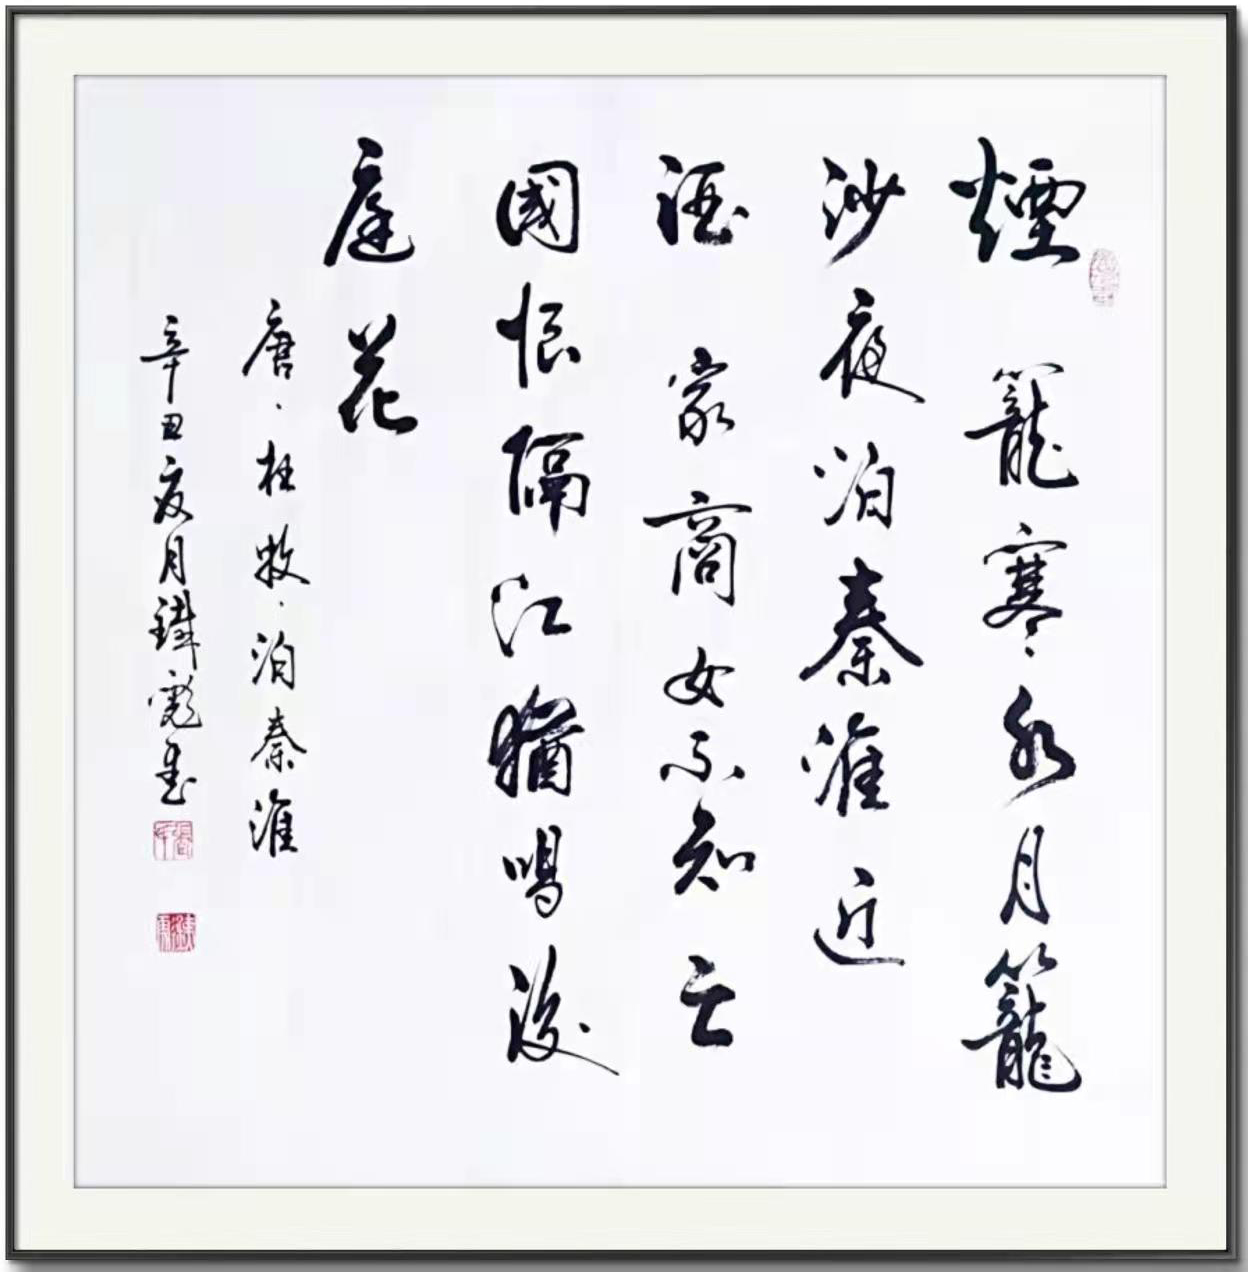 煙籠寒水月籠
沙夜泊秦淮近
酒家商女不知亡
國恨隔江猶唱後
庭花
唐·杜牧·泊秦淮
辛丑夏月書